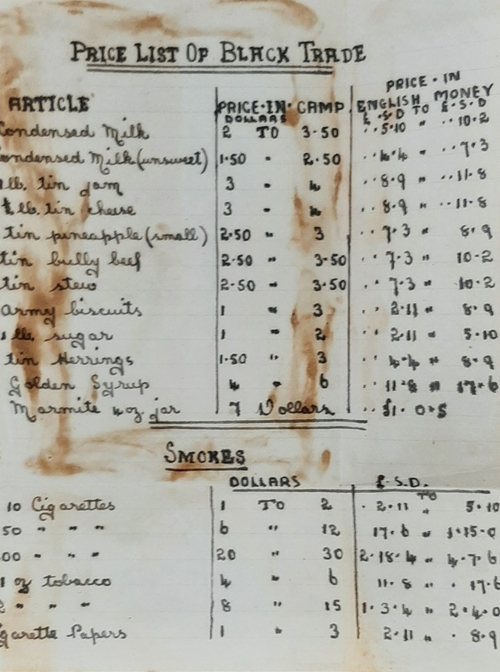 PRICE LIST OF BLACK TRADE
ARTICLE PRICE·IN·CAMP PRICE·IN ENGLISH MONEY
DOLLARS £·S·D TO £·S·D
Condensed Milk 2 TO 3·50 ··5·10 " ··10·2
ondensed Milk (unsweet) 1·50 " 2·50 ··4·4 " ··7·3
lb. tin jam 3 " 4 ··8·9 " ··11·8
lb. tin cheese 3 " 4 ··8·9 " ··11·8
tin pineapple (small) 2·50 " 3 ··7·3 " 8·9
tin bully beef 2·50 " 3·50 ··7·3 " 10·2
tin stew 2·50 " 3·50 ··7·3 " 10·2
army biscuits 1 " 3 ··2·11 " 8·9
1 lb. sugar 1 " 2 ··2·11 " 5·10
tin Herrings 1·50 " 3 ··4·4 " 8·9
Golden Syrup 4 " 6 ··11·8 " 17·6
Marmite 4 oz jar 7 Dollars ··£1·0·5
SMOKES
DOLLARS £.S.D.
10 Cigarettes 1 TO 2 ·2·11 TO 5·10
50 " " " 6 " 12 17·6 " 1·15·0
00 " " " 20 " 30 2·18·4 " 4·7·6
1 oz tobacco 4 " 6 11·8 " ·17·6
2 " " " 8 " 15 1·3·4 " 2·4·0
garette Papers 1 " 3 2·11 " ·8·9